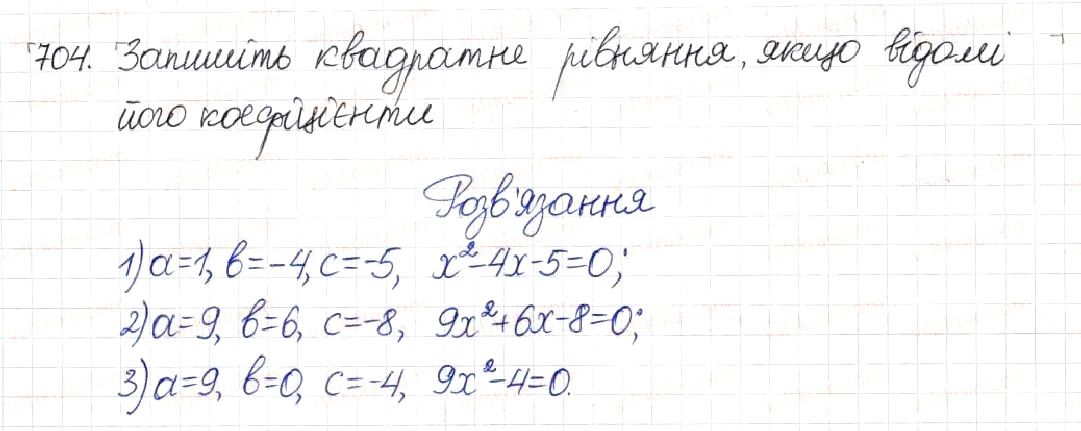 704. Запишіть квадратне рівняння, якщо відомі
його коефіцієнти
Розв'язання
1) a=1, b=-4, c=-5, x²-4x-5=0;
2) a=9, b=6, c=-8, 9x²+6x-8=0;
3) a=9, b=0, c=-4, 9x²-4=0.